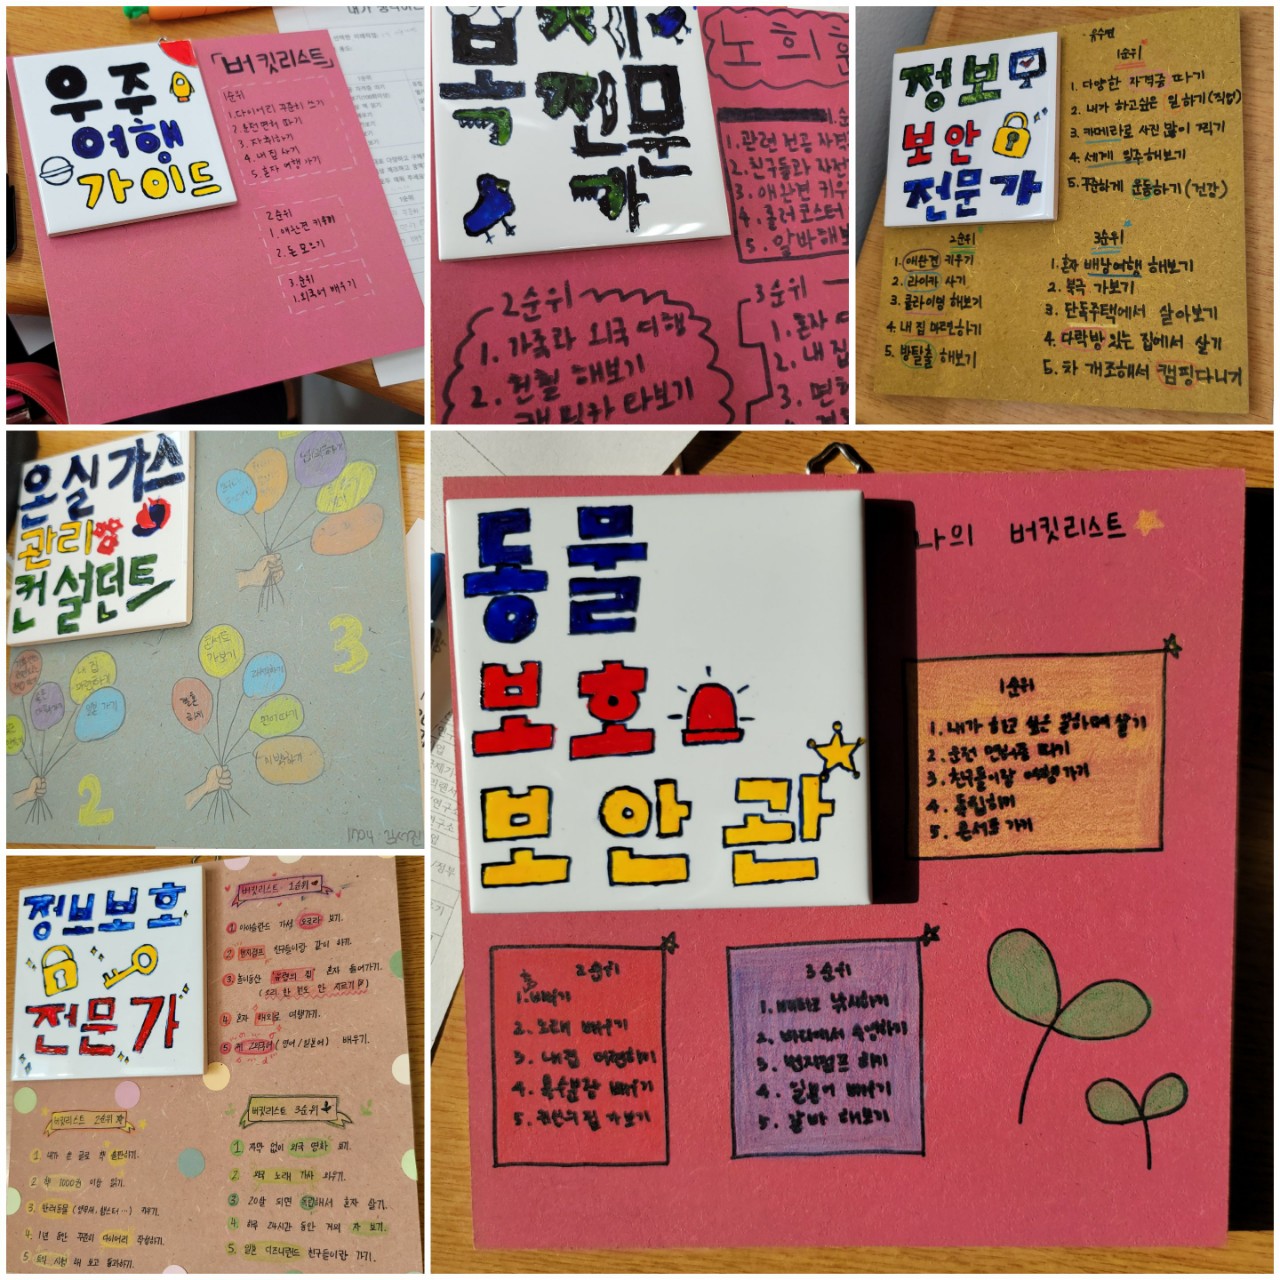 우주
여행
가이드
「버킷리스트」
1순위
1. 다이어리 꾸준히 쓰기
2. 운전면허 따기
3. 자취하기
4. 내 집 사기
5. 혼자 여행 가기
2순위
1. 애완견 키우기
2. 돈 모으기
3. 순위
1. 외국어 배우기
복 전문
가
노희
1. 관련 전공 자격
2. 친구들과 자전
3. 애완견 키우
4. 롤러코스터
5. 알바해보
2순위
1. 가족과 외국 여행
2. 번형 해보기
캠핑카 타보기
3순위
1. 혼자
2. 내 집
3. 면허
정보
보안
전문가
유수현
1순위
1. 다양한 자격증 따기
2. 내가 하고싶은 일 하기(직업)
3. 카메라로 사진 많이 찍기
4. 세계 일주해보기
5. 꾸준하게 운동하기(건강)
2순위
1. 애완견 키우기
2. 라이카 사기
3. 클라이밍 해보기
4. 내 집 마련하기
5. 방탈출 해보기
3순위
1. 혼자 배낭여행 해보기
2. 북극 가보기
3. 단독주택에서 살아보기
4. 다락방 있는 집에서 살기
5. 차 개조해서 캠핑다니기
온실가스
관리
컨설턴트
콘서트
가보기
내 집
마련하기
2
3
동물
보호
보안관
나의 버킷리스트
1순위
1. 내가 하고 싶은 일하며 살기
2. 운전 면허를 따기
3. 친구들이랑 여행가기
4. 독립하기
5. 콘서트 가기
2순위
1. 배우기
2. 노래 배우기
3. 내집 마련하기
4. 복수분장 배우기
5. 귀신의집 가보기
3순위
1. 배타고 낚시하기
2. 바다에서 수영하기
3. 번지점프 하기
4. 일본어 배우기
5. 알바 해보기
정보보호
전문가
버킷리스트 1순위
1 아이슬란드 가서 오로라 보기.
2 번지점프 친구들이랑 같이 하기.
3 놀이동산 유령의 집 혼자 들어가기.
(소리 한 번도 안 지르기)
4 혼자 해외로 여행가기.
5 제 2외국어(영어/일본어) 배우기.
버킷리스트 2순위
1. 내가 쓴 글로 책 출판하기.
2 책 1000권 이상 읽기.
3. 반려동물(앵무새, 햄스터…) 키우기.
4. 1년 동안 꾸준히 다이어리 작성하기.
5. 토익 시험 봐 보고 통과하기.
버킷리스트 3순위
1 자막 없이 외국 영화 보기.
2 외국 노래 가사 외우기.
3 20살 되면 독립해서 혼자 살기.
4. 하루 24시간 동안 계속 자 보기.
5. 일본 디즈니랜드 친구들이랑 가기.